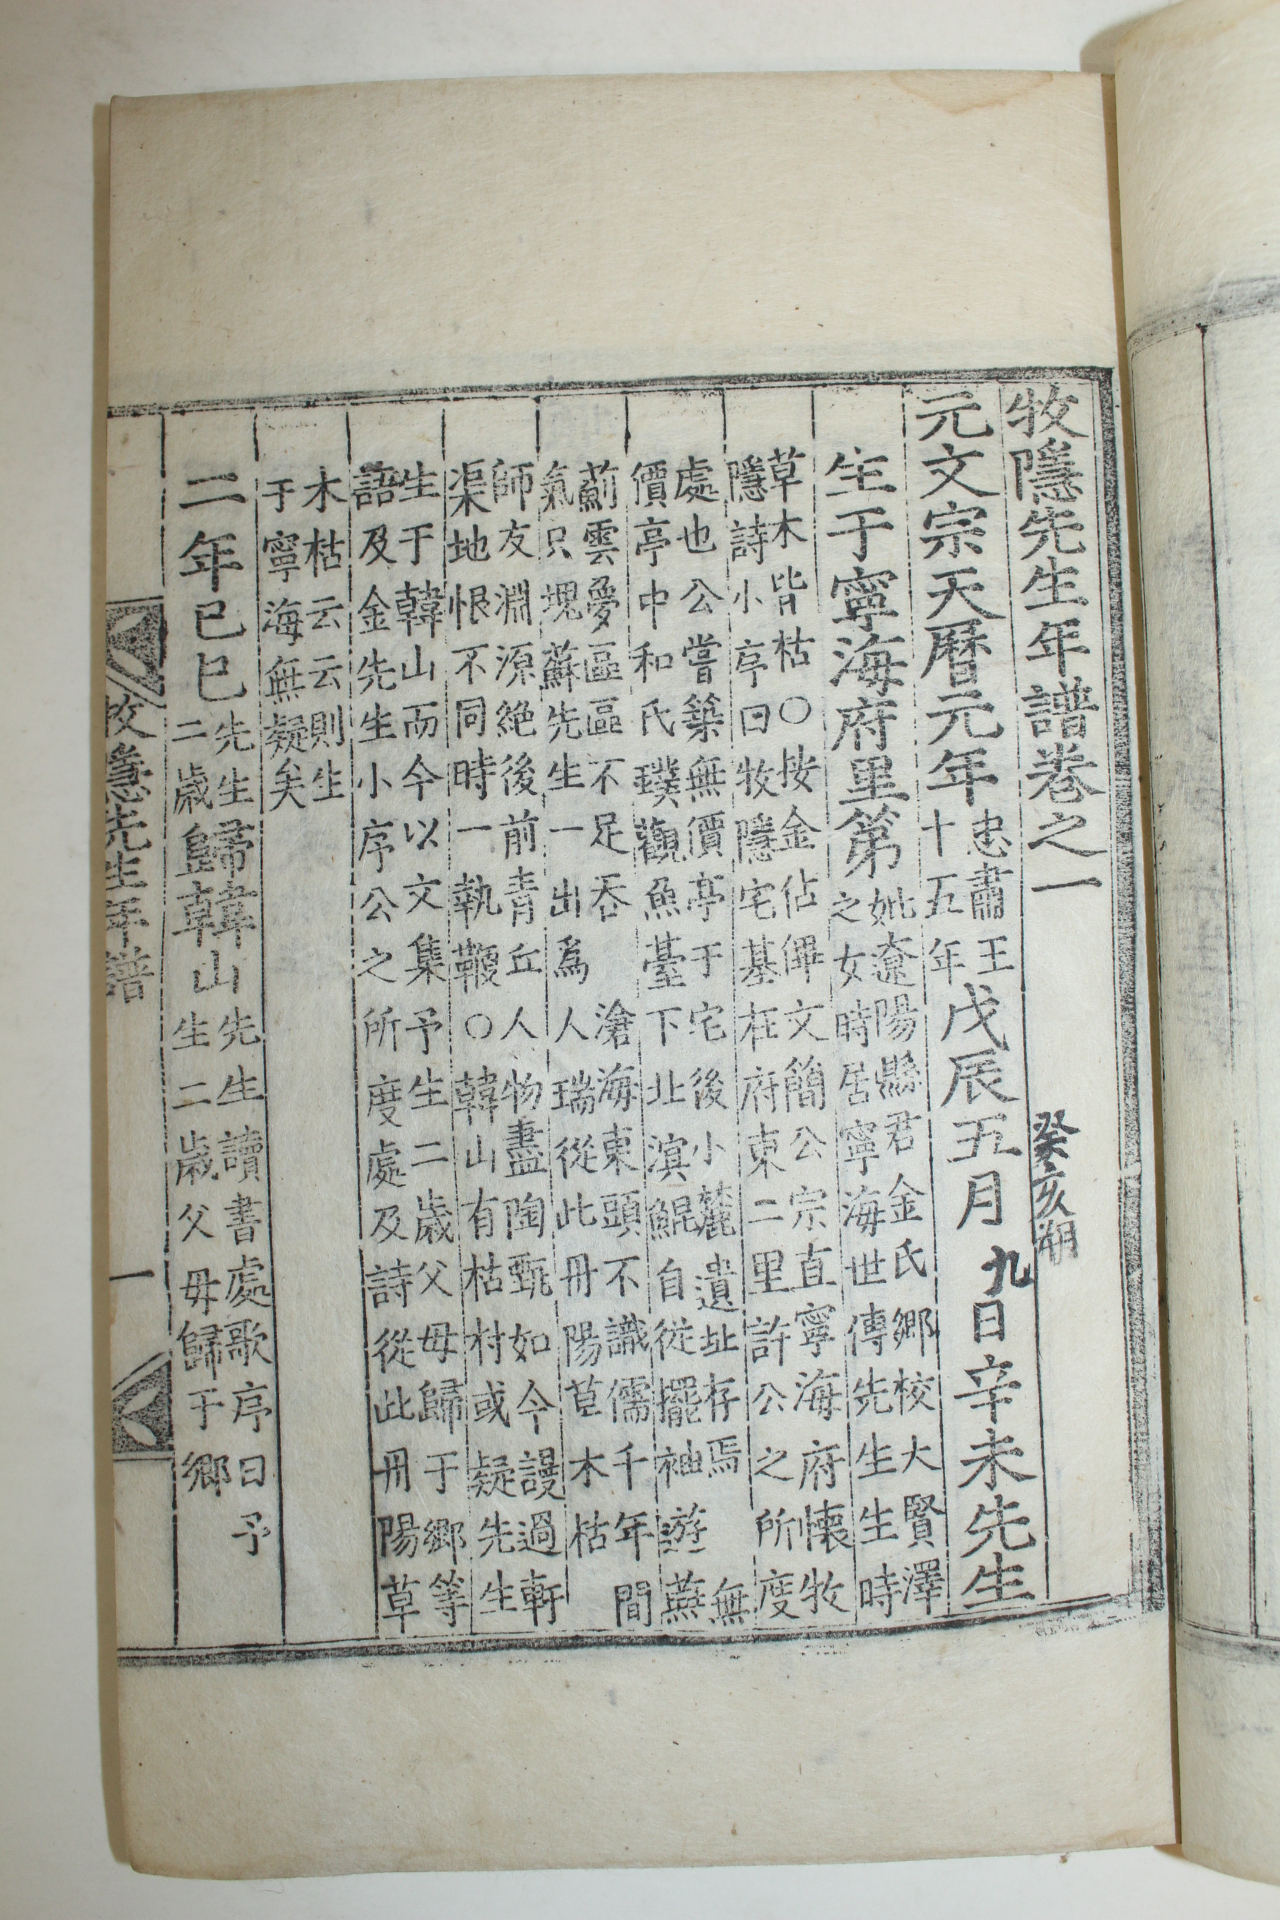 牧隱先生年譜卷之一
癸亥朔
元文宗天曆元年忠肅王十五年戊辰五月九日辛未先生
生于寧海府里第妣遼陽縣君金氏鄉校大賢澤
之女時居寧海世傳先生生時
草木皆枯○按金佔畢文簡公宗直寧海府懷牧
隱詩小序曰牧隱宅基在府東二里許公之所度
處也公嘗築無價亭于宅後小麓遺址存焉 無
價亭中和氏璞觀魚臺下北溟鯤自從擺袖遊燕
薊雲夢區區不足吞 滄海東頭不識儒千年間
氣只塊蘇先生一出爲人瑞從此丹陽草木枯
師友淵源絶後前青丘人物盡陶甄如今謾過軒
渠地恨不同時一執鞭○韓山有枯村或疑先生
生于韓山而今以文集予生二歲父母歸于鄉等
語及金先生小序公之所度處及詩從此丹陽草
木枯云云則生
于寧海無疑矣
二年己巳先生二歲歸韓山先生讀書處歌序曰予
生二歲父母歸于鄉
牧隱先生年譜
一